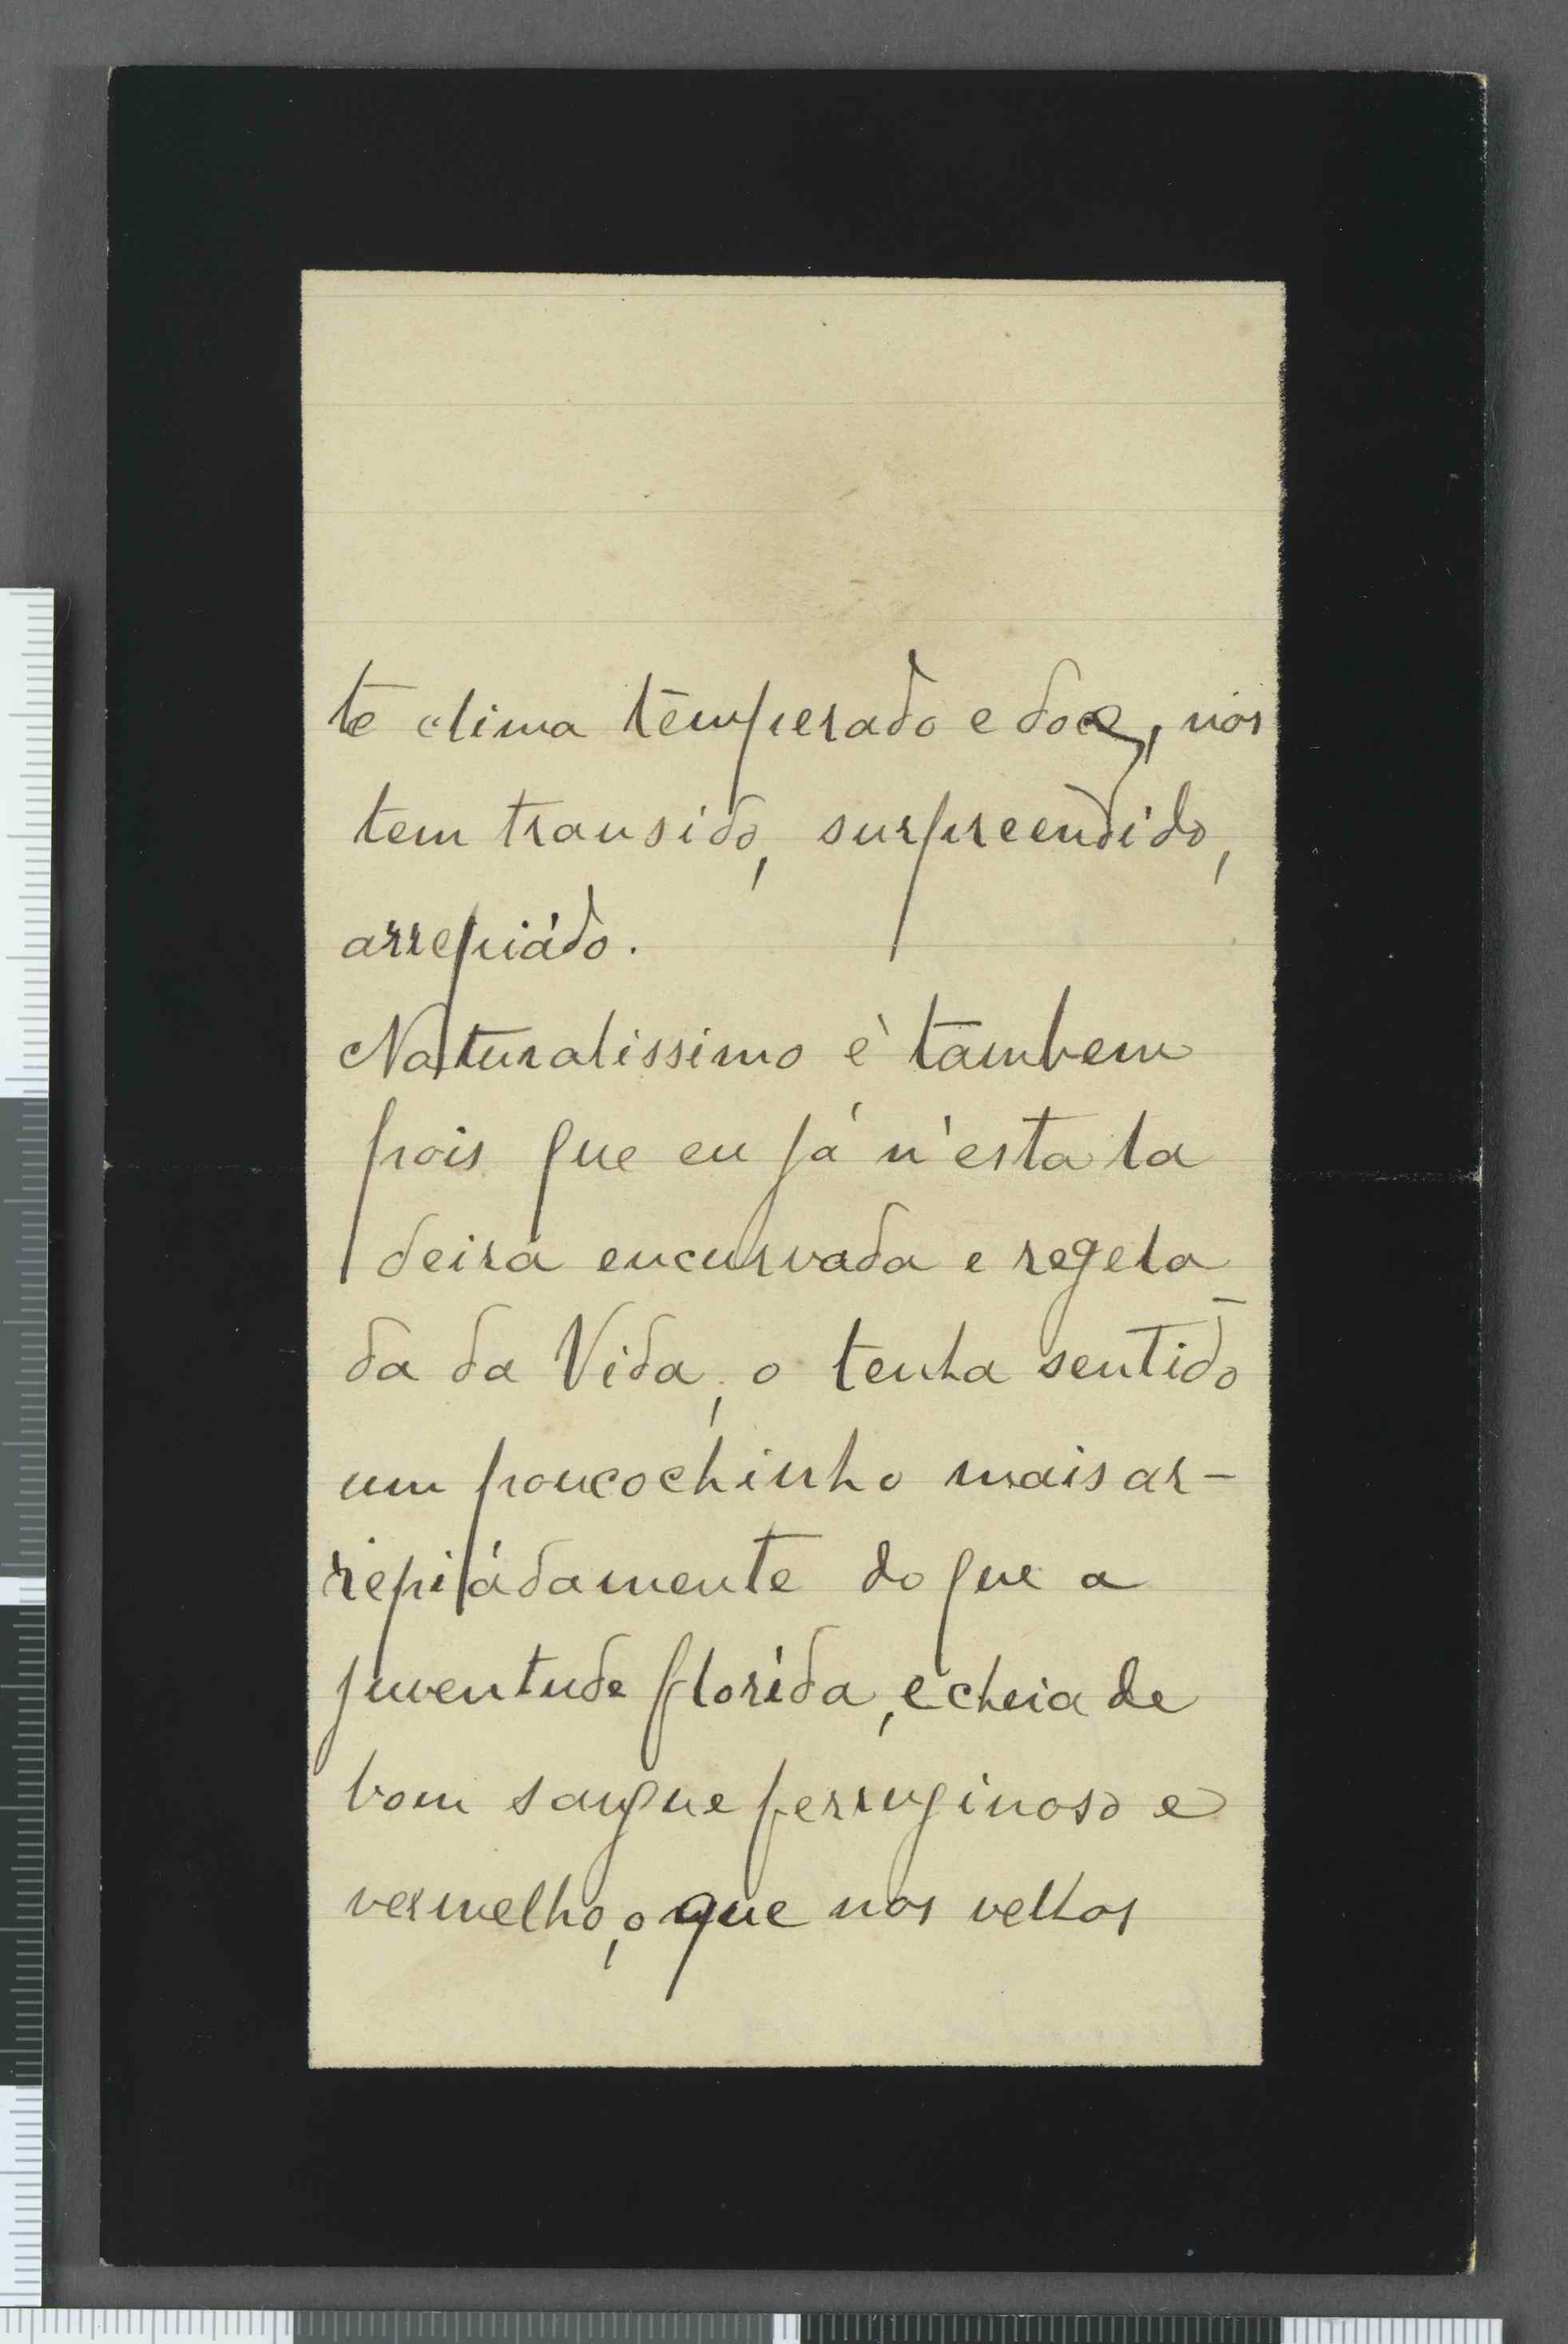 te clima temperado e doce, nos
tem transido, surpreendido,
arrepiádo.
Naturalissimo é tambem
pois que eu já n'esta la
deira encurvada e regela
da da Vida, o tenha sentido
um poucochinho mais ar-
repiádamente do que a
juventude florida, e cheia de
bom sangue ferruginoso e
vermelho, o que nos velhos